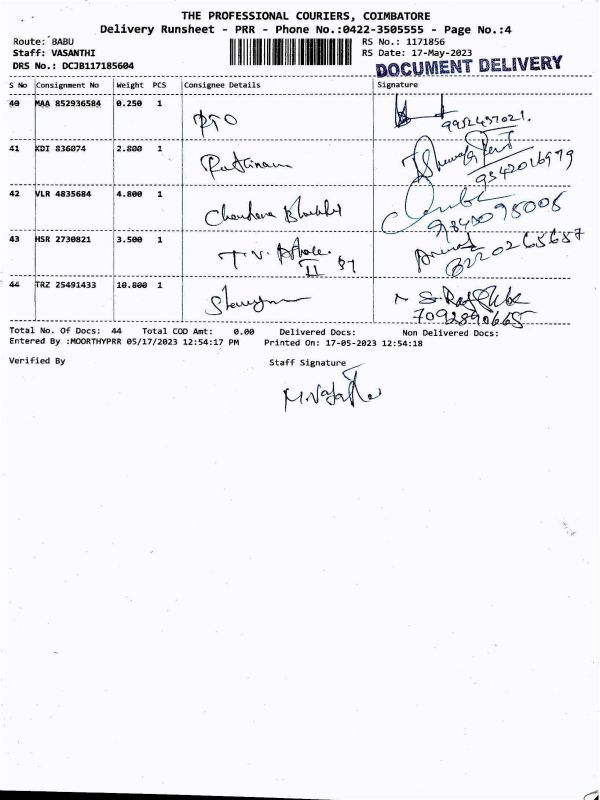 THE PROFESSIONAL COURIERS, COIMBATORE
Delivery Runsheet - PRR - Phone No.:0422-3505555 - Page No.:4
Route: BABU RS No.: 1171856
Staff: VASANTHI RS Date: 17-May-2023
DRS No.: DCJB117185604 DOCUMENT DELIVERY
S No Consignment No Weight PCS Consignee Details Signature
40 MAA 852936584 0.250 1 RTO
9952437021.
41 KDI 836074 2.800 1 Rathinam
9542016979
42 VLR 4835684 4.800 1 Chandana
9843095006
43 HSR 2730821 3.500 1 T.V.
II 8220265657
44 TRZ 25491433 10.800 1
7092890665
Total No. Of Docs: 44 Total COD Amt: 0.00 Delivered Docs: Non Delivered Docs:
Entered By :MOORTHYPRR 05/17/2023 12:54:17 PM Printed On: 17-05-2023 12:54:18
Verified By Staff Signature